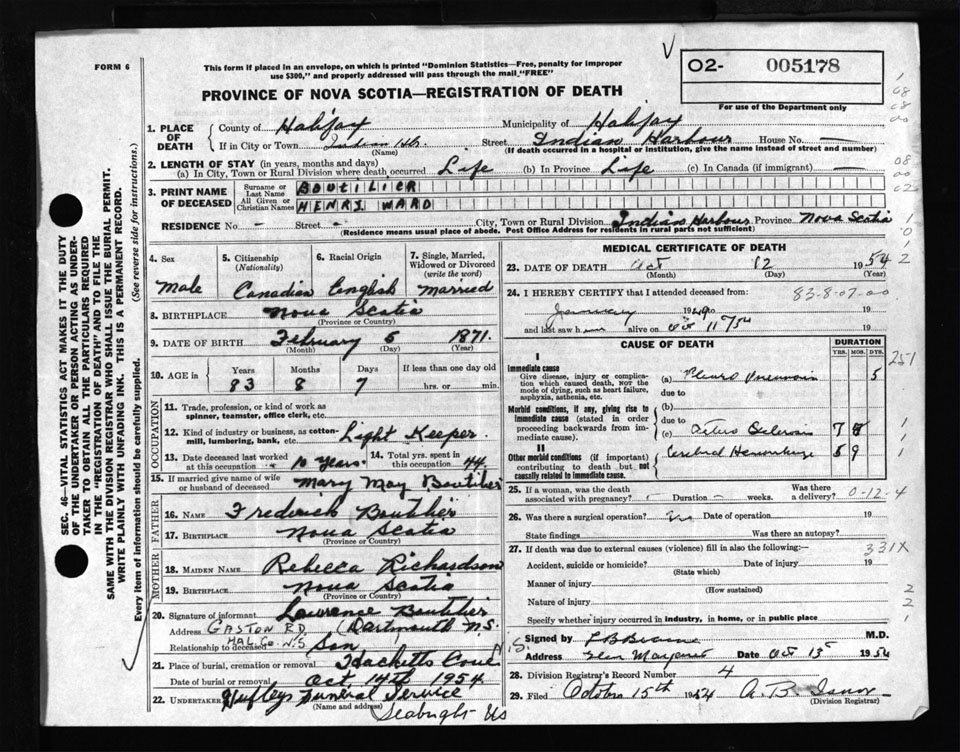 FORM 6
This form if placed in an envelope, on which is printed "Dominion Statistics—Free, penalty for improper
use $300," and properly addressed will pass through the mail "FREE"
PROVINCE OF NOVA SCOTIA—REGISTRATION OF DEATH
O2- 005178
For use of the Department only
SEC. 46—VITAL STATISTICS ACT MAKES IT THE DUTY
OF THE UNDERTAKER OR PERSON ACTING AS UNDER-
TAKER TO OBTAIN ALL THE PARTICULARS REQUIRED
IN THE "REGISTRATION OF DEATH" AND TO FILE THE
SAME WITH THE DIVISION REGISTRAR WHO SHALL ISSUE THE BURIAL PERMIT.
WRITE PLAINLY WITH UNFADING INK. THIS IS A PERMANENT RECORD.
Every item of information should be carefully supplied. (See reverse side for instructions.)
1. PLACE OF DEATH
County of Halifax Municipality of Halifax
If in City or Town Indian Hr. Street Indian Harbour House No. —
(Name) (If death occurred in a hospital or institution, give the name instead of street and number)
2. LENGTH OF STAY (in years, months and days)
(a) In City, Town or Rural Division where death occurred Life (b) In Province Life (c) In Canada (if immigrant) —
3. PRINT NAME OF DECEASED
Surname or Last Name BOUTILIER
All Given or Christian Names HENRY WARD
RESIDENCE No — Street — City, Town or Rural Division Indian Harbour Province Nova Scotia
(Residence means usual place of abode. Post Office Address for residents in rural parts not sufficient)
4. Sex 5. Citizenship (Nationality) 6. Racial Origin 7. Single, Married, Widowed or Divorced (write the word)
Male Canadian English Married
8. BIRTHPLACE Nova Scotia
(Province or Country)
9. DATE OF BIRTH February 5 1871
(Month) (Day) (Year)
10. AGE in Years Months Days If less than one day old
83 8 7 hrs. or min.
OCCUPATION
11. Trade, profession, or kind of work as
spinner, teamster, office clerk, etc.
12. Kind of industry or business, as cotton-
mill, lumbering, bank, etc. Light Keeper.
13. Date deceased last worked
at this occupation 10 years. 14. Total yrs. spent in
this occupation 44.
15. If married give name of wife
or husband of deceased Mary May Boutilier
FATHER
16. NAME Frederick Boutilier
17. BIRTHPLACE Nova Scotia
(Province or Country)
MOTHER
18. MAIDEN NAME Rebecca Richardson
19. BIRTHPLACE Nova Scotia
(Province or Country)
20. Signature of informant Lawrence Boutilier
Address GASTON RD (Dartmouth N.S.
HAL. Co. N.S
Relationship to deceased Son
21. Place of burial, cremation or removal Hacketts Cove
Date of burial or removal Oct 14th 1954
22. UNDERTAKER Funeral Service
(Name and address) Seabright
MEDICAL CERTIFICATE OF DEATH
23. DATE OF DEATH Oct 12 1954
(Month) (Day) (Year)
24. I HEREBY CERTIFY that I attended deceased from: 83-8-07-00
January 19 to 19
and last saw h alive on Oct 11 54 19
CAUSE OF DEATH DURATION
YRS. MOS. DYS.
I
Immediate cause
Give disease, injury or complica-
tion which caused death, NOT the
mode of dying, such as heart failure,
asphyxia, asthenia, etc.
(a) Pleuro Pneumonia 5
due to
Morbid conditions, if any, giving rise to
immediate cause (stated in order
proceeding backwards from im-
mediate cause).
(b)
due to
(c) Arterio Sclerosis 7
II
Other morbid conditions (if important)
contributing to death but not
causally related to immediate cause.
Cerebral Hemorrhage 5 9
251
25. If a woman, was the death
associated with pregnancy? Duration — weeks. Was there
a delivery? 0-12-4
26. Was there a surgical operation? No Date of operation 19
State findings Was there an autopsy?
27. If death was due to external causes (violence) fill in also the following:— 331X
Accident, suicide or homicide? Date of injury 19
(State which)
Manner of injury
(How sustained)
Nature of injury
Specify whether injury occurred in industry, in home, or in public place
Signed by M.D.
Address Glen Margaret Date Oct 13 1954
28. Division Registrar's Record Number 4
29. Filed October 15th 1954 A. B.
(Division Registrar)